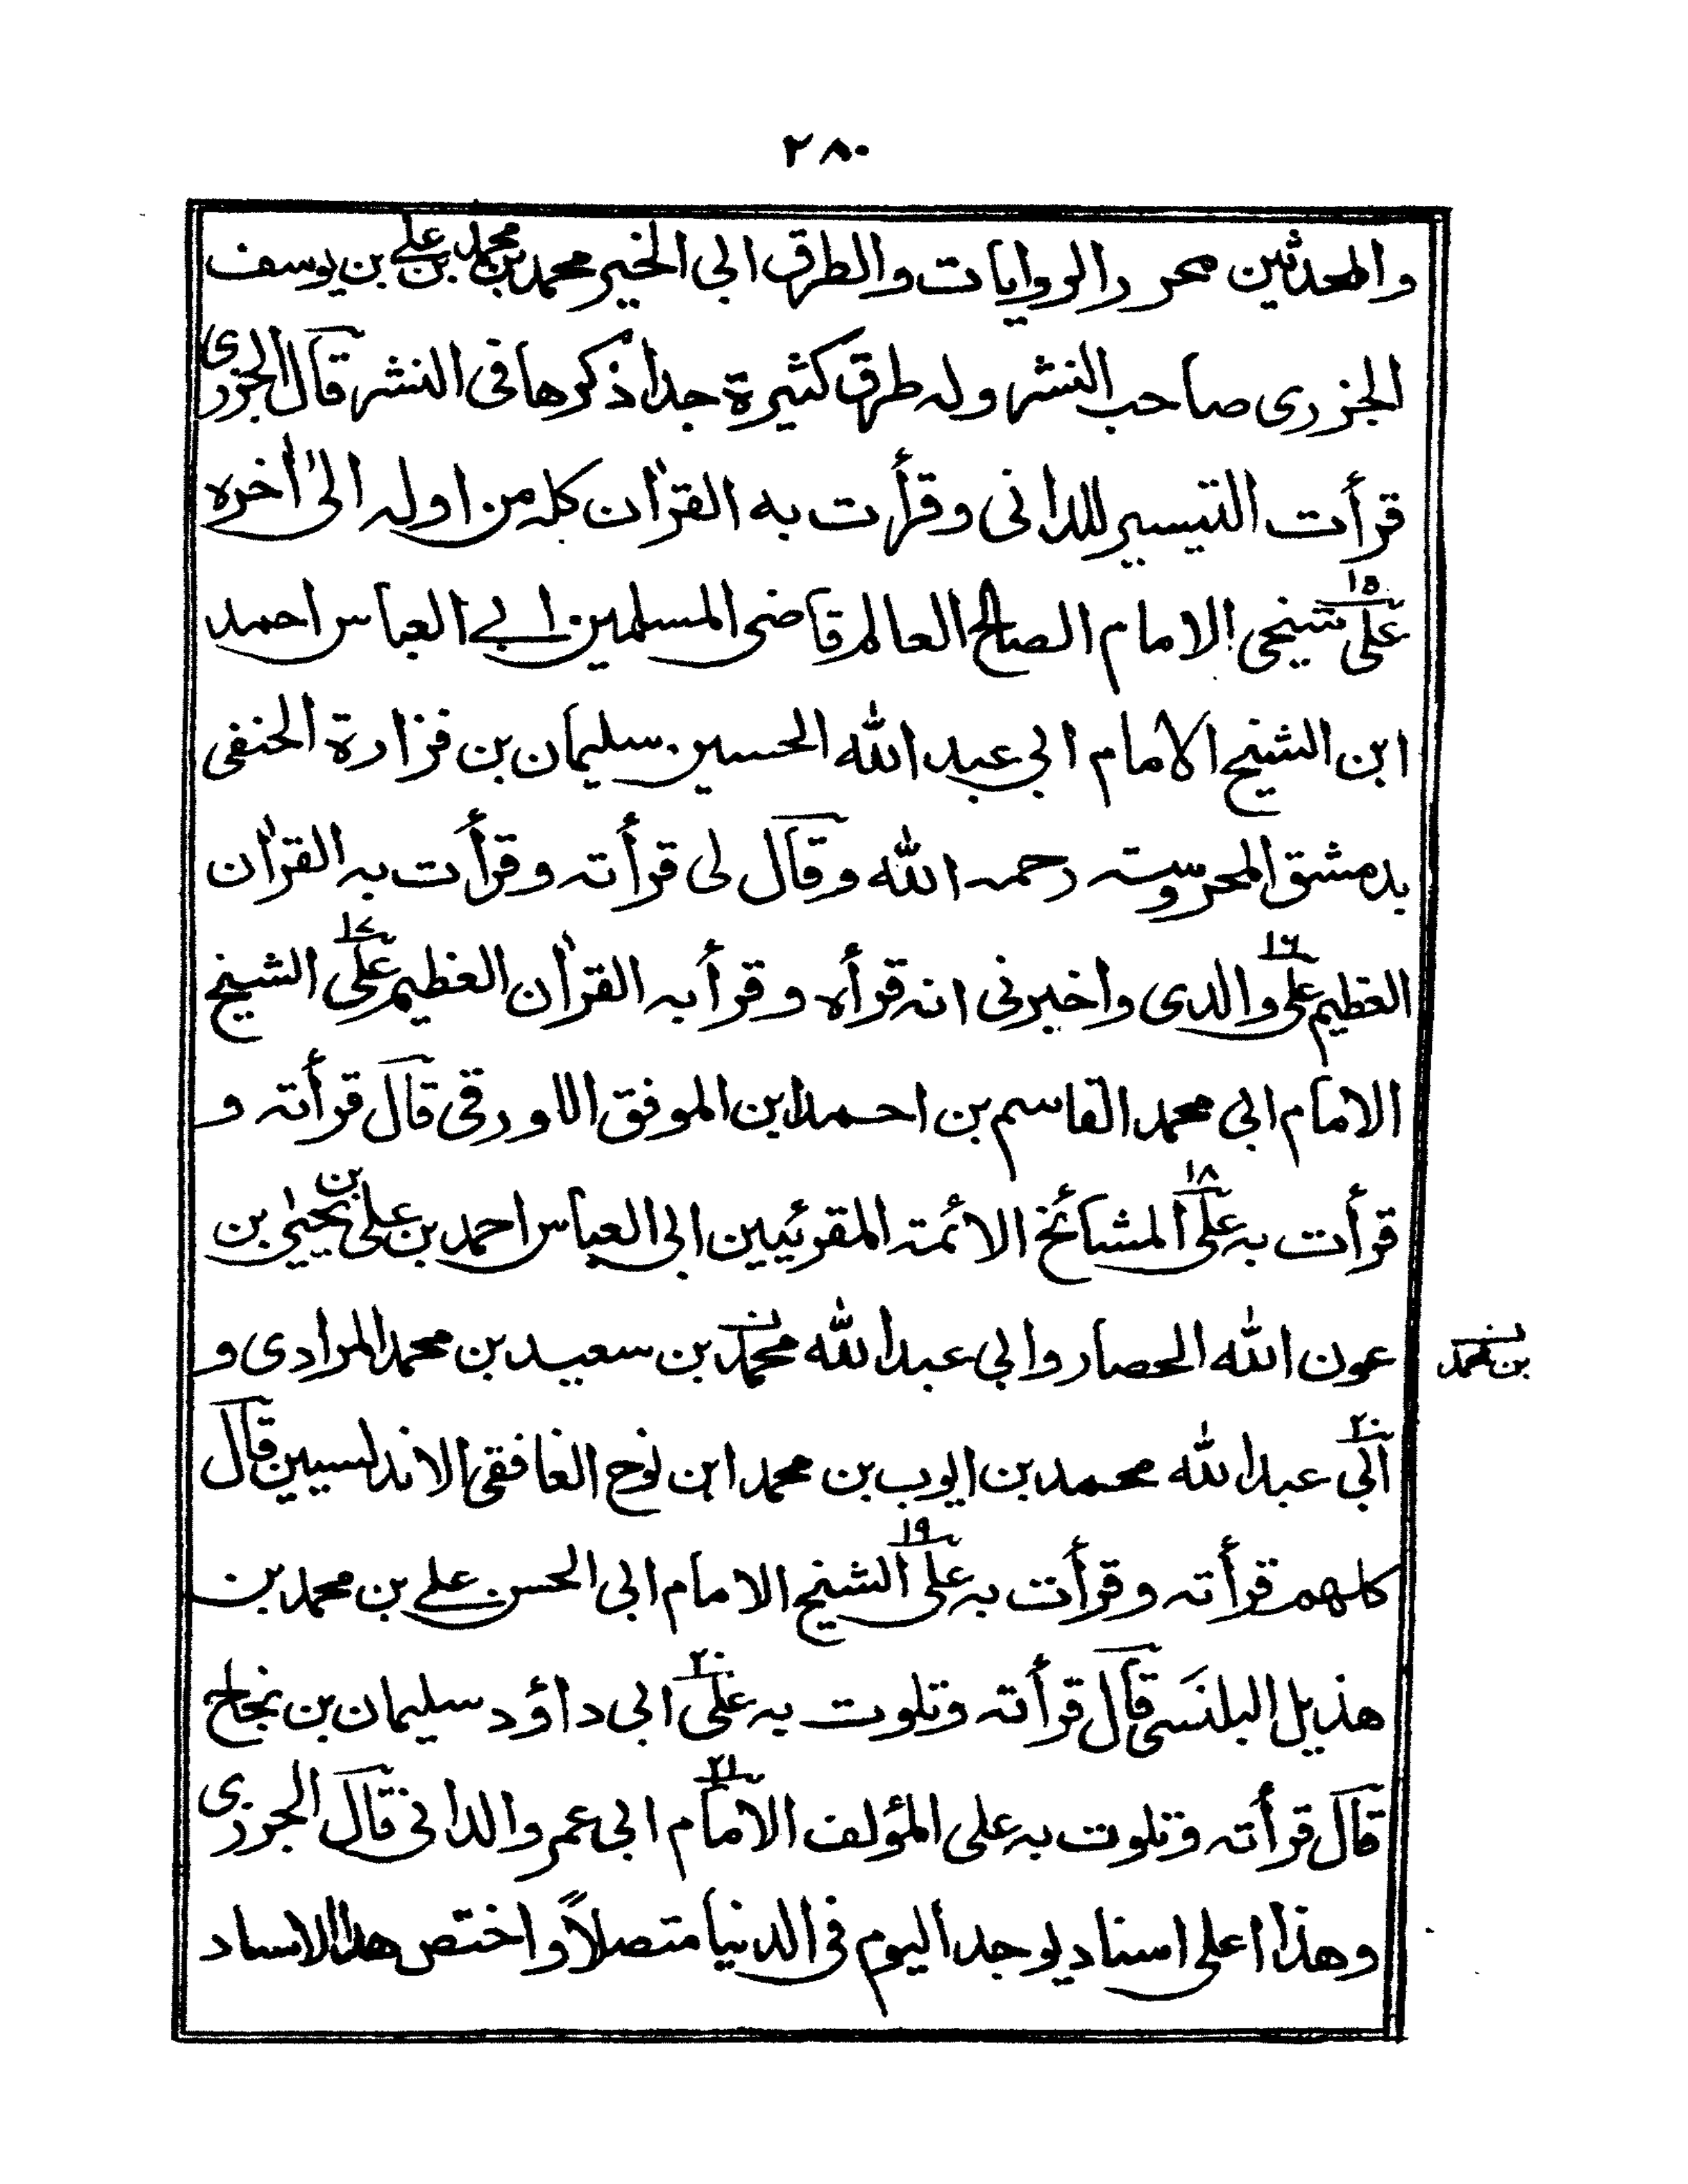 ٢٨٠
والمحدثين محرر الروايات والطرق الى الخير محمد بن محمد بن علی بن يوسف
الجزرى صاحب النشر وله طرق كثيرة جدا ذكرها فى النشر قال الجزرى
قرأت التيسير للدانى وقرأت به القراٰن كله من اوله الىٰ اٰخره
١٥
على شيخى الامام الصالح العالم قاضى المسلمين ابے العباس احمد
ابن الشيخ الامام ابى عبد الله الحسين سليمان بن فزارة الحنفى
بدمشق المحروسته رحمه الله وقال لى قرأته وقرأت به القراٰن
١٦ ١٧
العظيم على والدى واخبرنى انه قرأه وقرأ به القراٰن العظيم على الشيخ
الامام ابى محمد القاسم بن احمد ابن الموفق اللاورقى قال قرأته و
١٨
قرأت به على المشائخ الائمته المقرئيين ابى العباس احمد بن على بن يحيىٰ بن
عون الله الحصار وابى عبد الله محمد بن سعيد بن محمد المرادى و
بن محمد
٢٠
ابى عبد الله محمد بن ايوب بن محمد ابن نوح الغافقى الاندلسيين قال
١٩
كلهم قرأته وقرأت به على الشيخ الامام ابى الحسن علے بن محمد بن
٢٠
هذيل البلنسى قال قرأته وتلوت به على ابى داؤد سليمان بن نجاح
٢١
قال قرأته وتلوت به على المؤلف الامام ابى عمرو الدانى قال الجزرى
وهذا اعلى اسناد يوجد اليوم فى الدنيا متصلاً واختص هذا الاسناد